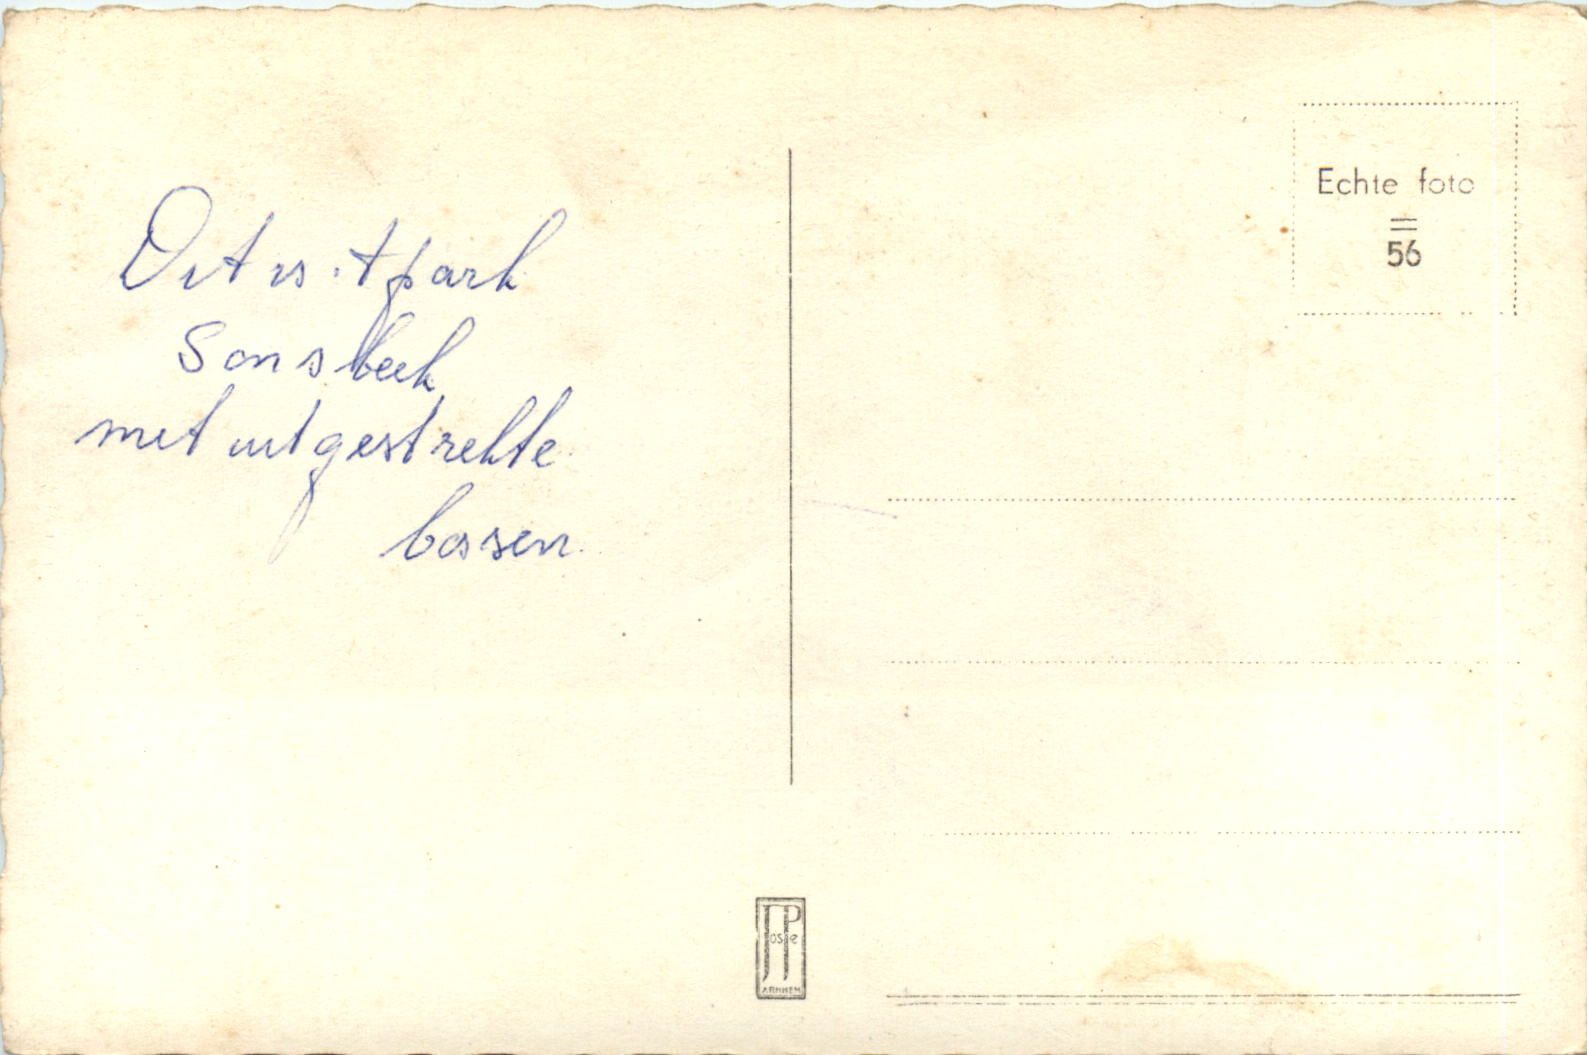 Dit is 't park
Sonsbeek
met uitgestrekte
bossen.
Echte foto
56
JosPe
ARNHEM